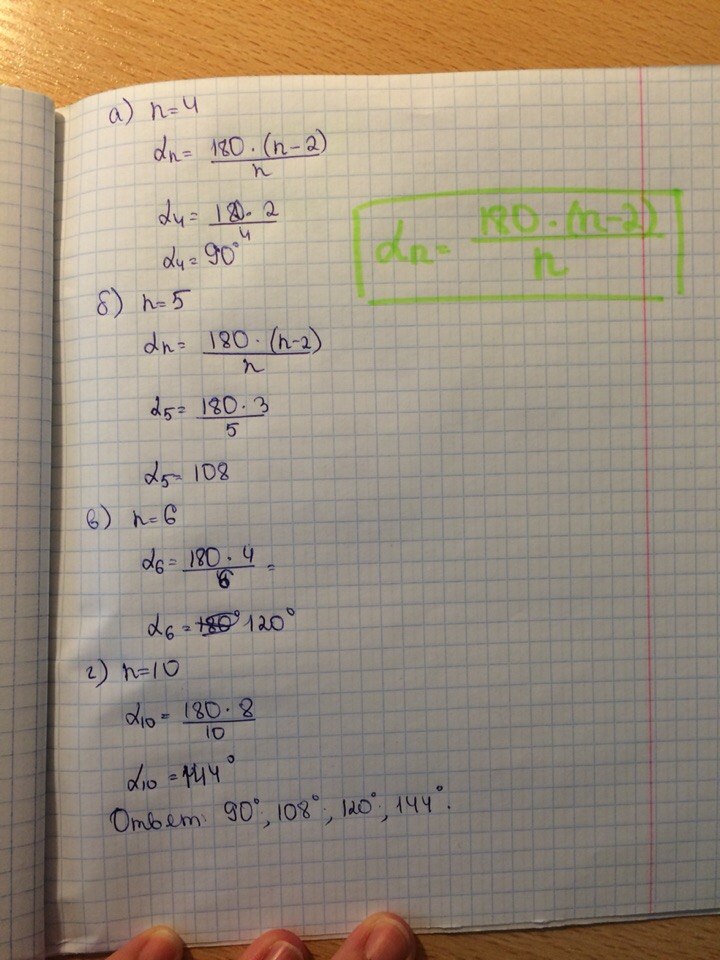 а) n=4
αn = 180·(n-2)/n
α4 = 180·2/4
α4 = 90°
αn = 180·(n-2)/n
б) n=5
αn = 180·(n-2)/n
α5 = 180·3/5
α5 = 108
в) n=6
α6 = 180·4/6 =
α6 = 120°
г) n=10
α10 = 180·8/10
α10 = 144°
Ответ: 90°; 108°; 120°; 144°.